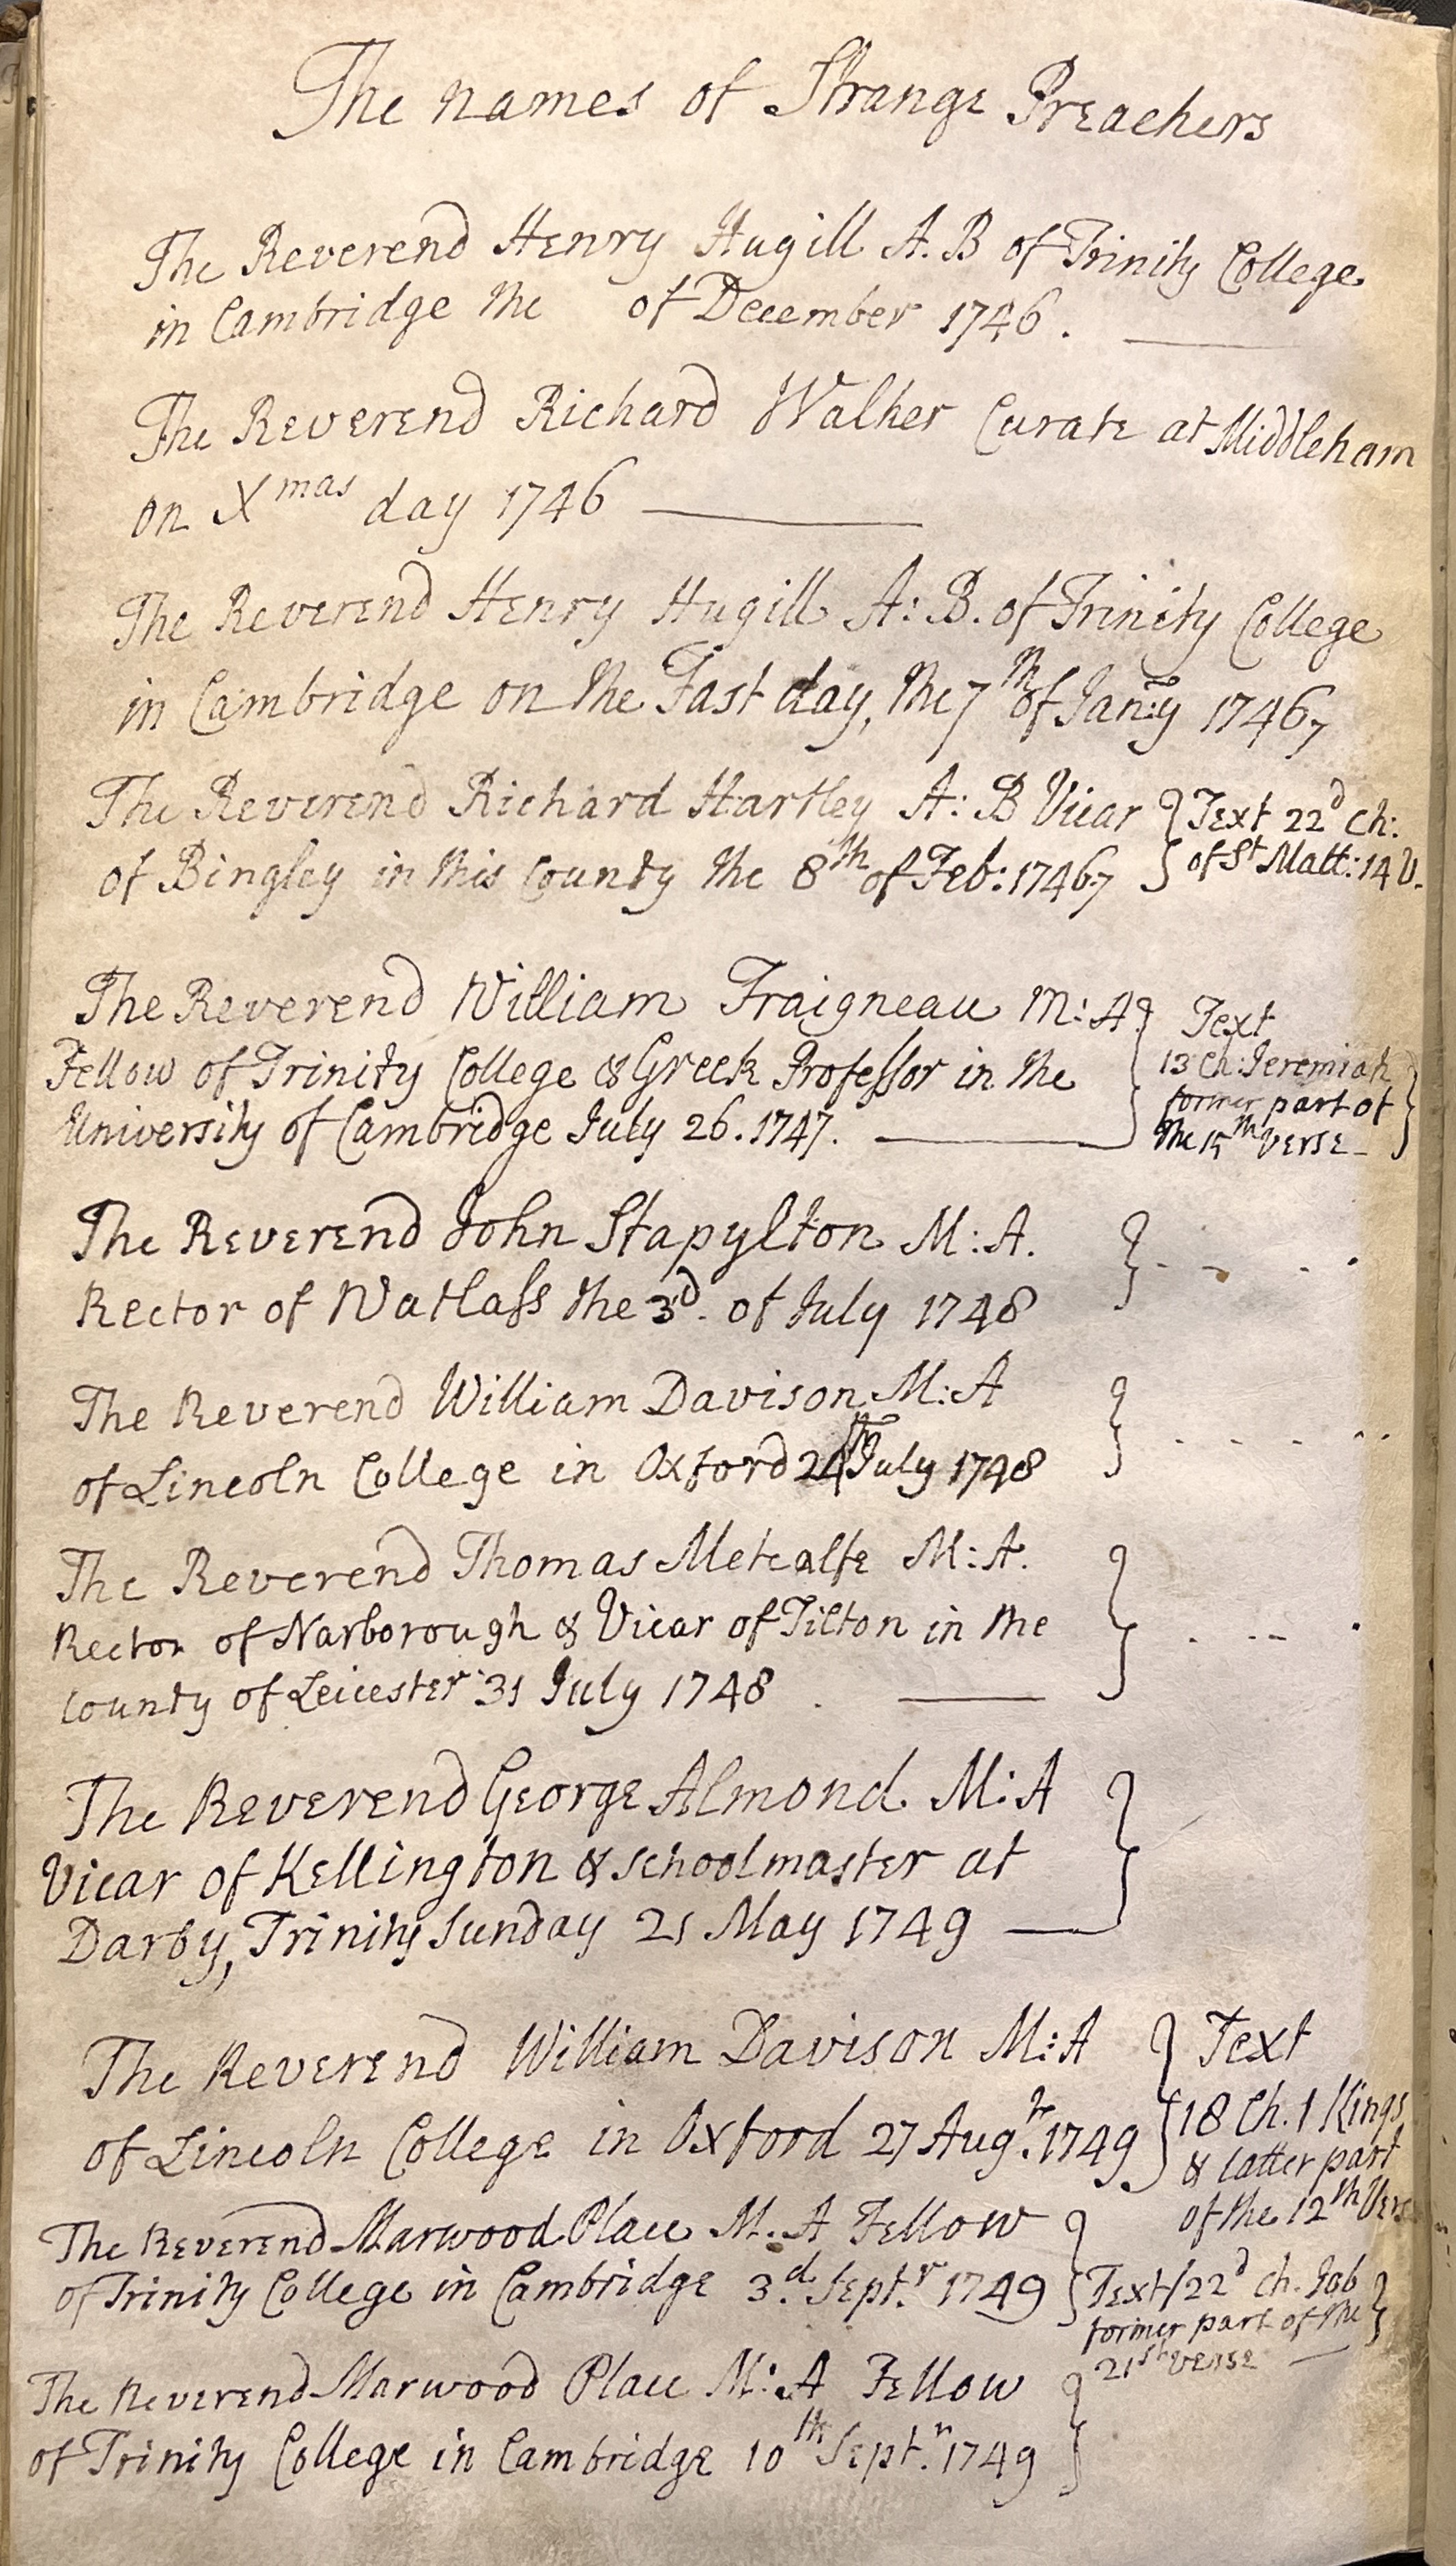 The names of Strange Preachers
The Reverend Henry Hugill A.B of Trinity College
in Cambridge the of December 1746.
The Reverend Richard Walker Curate at Middleham
on Xmas day 1746
The Reverend Henry Hugill A: B. of Trinity College
in Cambridge on the Fast day, the 7th of Jan:ry 1746,7
The Reverend Richard Hartley A: B Vicar
of Bingley in this County the 8th of Feb: 1746,7
Text 22d Ch:
of St Matt: 14 V.
The Reverend William Fraigneau M: A
Fellow of Trinity College & Greek Professor in the
University of Cambridge July 26. 1747.
Text
13 Ch: Jeremiah
former part of
the 15th verse
The Reverend John Stapylton M: A.
Rector of Watlass the 3d. of July 1748
The Reverend William Davison M: A
of Lincoln College in Oxford 24th July 1748
The Reverend Thomas Metcalfe M: A.
Rector of Narborough & Vicar of Tilton in the
County of Leicester 31 July 1748
The Reverend George Almond M: A
Vicar of Kellington & Schoolmaster at
Darby, Trinity Sunday 21 May 1749
The Reverend William Davison M: A
of Lincoln College in Oxford 27 Augt. 1749
Text
18 Ch. 1 Kings
& latter part
of the 12th Verse
The Reverend Marwood Place M. A Fellow
of Trinity College in Cambridge 3d. Sept.r 1749
Text 22d ch. Job
former part of the
21st verse
The Reverend Marwood Place M: A Fellow
of Trinity College in Cambridge 10th Sept.r 1749